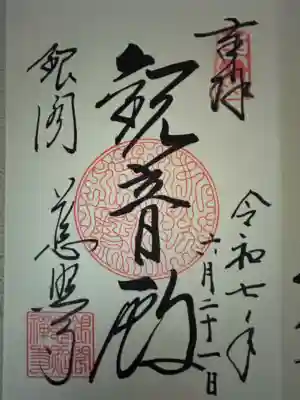 奉拝
令和七年
六月二十一日
観音殿
銀閣
慈照寺